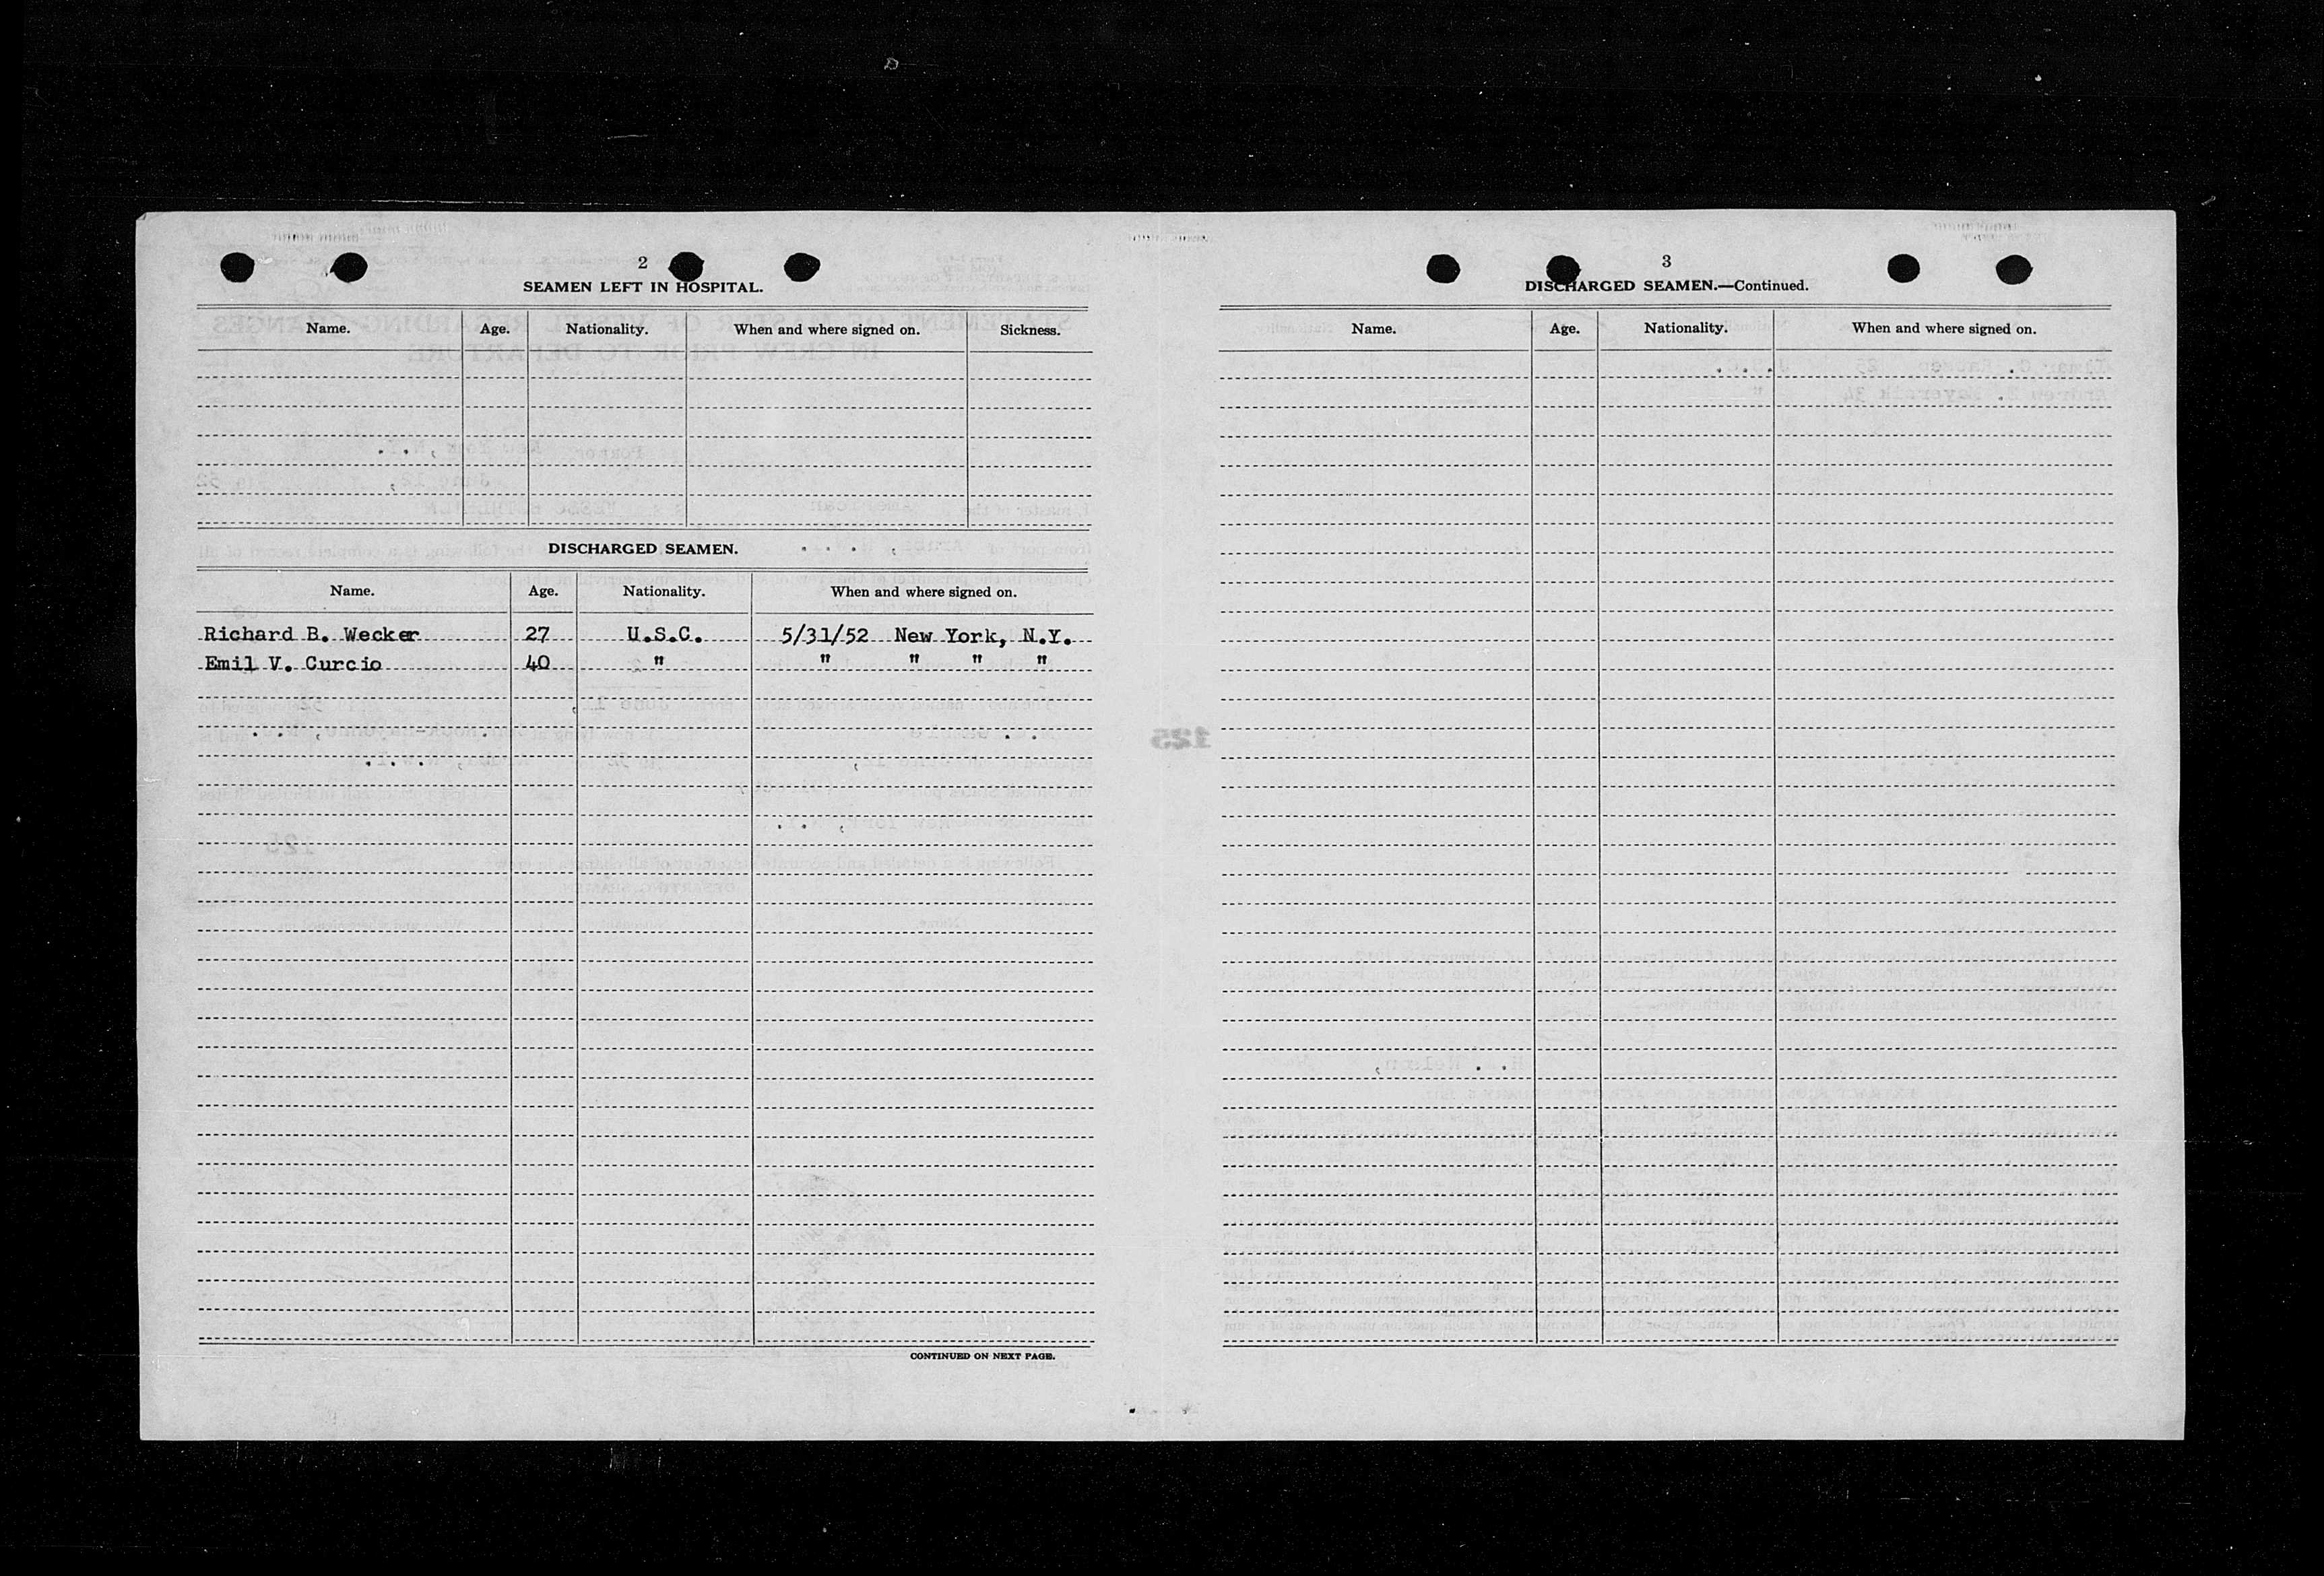 2
SEAMEN LEFT IN HOSPITAL.
Name. Age. Nationality. When and where signed on. Sickness.
DISCHARGED SEAMEN.
Name. Age. Nationality. When and where signed on.
Richard B. Wecker 27 U.S.C. 5/31/52 New York, N.Y.
Emil V. Curcio 40 " " " " "
CONTINUED ON NEXT PAGE.
3
DISCHARGED SEAMEN.—Continued.
Name. Age. Nationality. When and where signed on.